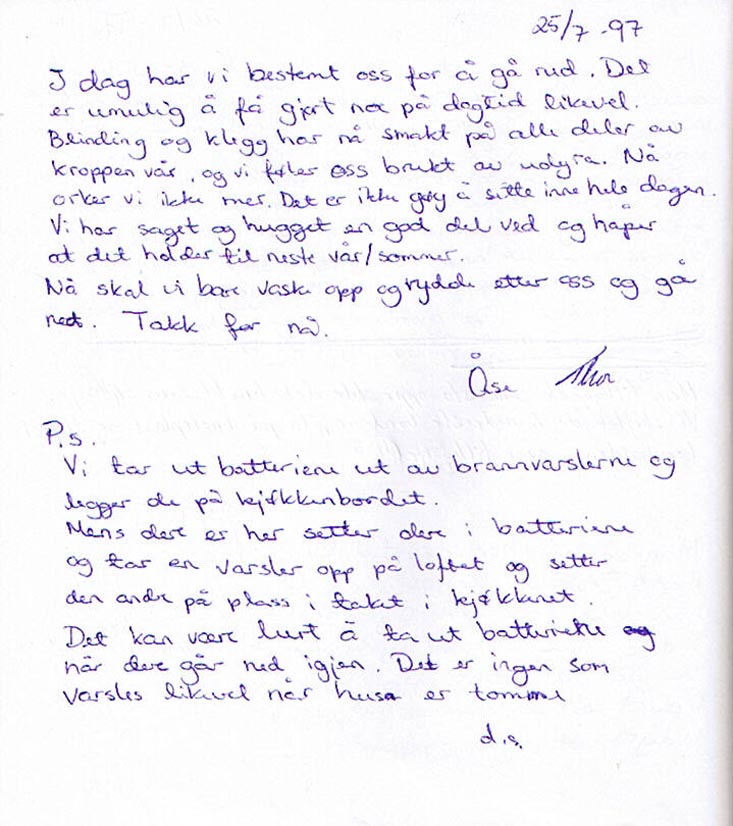 25/7-97
I dag har vi bestemt oss for å gå ned. Det
er umulig å få gjort noe på dagtid likevel.
Blinding og klegg har nå smakt på alle deler av
kroppen vår, og vi føler oss brukt av udyra. Nå
orker vi ikke mer. Det er ikke gøy å sitte inne hele dagen.
Vi har saget og hugget en god del ved og håper
at det holder til neste vår/sommer.
Nå skal vi bare vaske opp og rydde etter oss og gå
ned. Takk for nå.
Åse Thor
P.s.
Vi tar ut batteriene ut av brannvarslerne og
legger de på kjøkkenbordet.
Mens dere er her setter dere i batteriene
og tar en varsler opp på loftet og setter
den andre på plass i taket i kjøkkenet.
Det kan være lurt å ta ut batteriene
når dere går ned igjen. Det er ingen som
varsles likevel når husa er tomme
d.s.